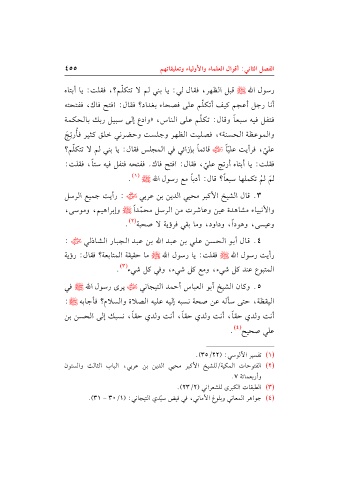 الفصل الثاني: أقوال العلماء والأولياء وتعليقاتهم ٤٥٥
رسول الله ﷺ قبل الظهر، فقال لي: يا بني لم لا تتكلّم؟، فقلت: يا أبتاه
أنا رجل أعجم كيف أتكلّم على فصحاء بغداد؟ فقال: افتح فاك، ففتحته
فتفل فيه سبعاً وقال: تكلّم على الناس، «وادع إلى سبيل ربك بالحكمة
والموعظة الحسنة»، فصليت الظهر وجلست وحضرني خلق كثير فأرتج
عليّ، فرأيت عليّاً قائماً بإزائي في المجلس فقال: يا بني لم لا تتكلّم؟
فقلت: يا أبتاه أرتج عليّ، فقال: افتح فاك. ففتحه فتفل فيه ستاً، فقلت:
لم لمْ تكملها سبعاً؟ قال: أدباً مع رسول الله ﷺ (١).
٣. قال الشيخ الأكبر محيي الدين بن عربي : رأيت جميع الرسل
والأنبياء مشاهدة عين وعاشرت من الرسل محمّداً ﷺ وإبراهيم، وموسى،
وعيسى، وهوداً، وداود، وما بقي فرؤية لا صحبة(٢).
٤. قال أبو الحسن علي بن عبد الله بن عبد الجبار الشاذلي :
رأيت رسول الله ﷺ فقلت: يا رسول الله ﷺ ما حقيقة المتابعة؟ فقال: رؤية
المتبوع عند كل شيء، ومع كل شيء، وفي كل شيء(٣).
٥. وكان الشيخ أبو العباس أحمد التيجاني يرى رسول الله ﷺ في
اليقظة، حتى سأله عن صحة نسبه إليه عليه الصلاة والسلام؟ فأجابه ﷺ:
أنت ولدي حقاً، أنت ولدي حقاً، أنت ولدي حقاً، نسبك إلى الحسن بن
علي صحيح(٤).
(١) تفسير الآلوسي: (٢٢/ ٣٥).
(٢) الفتوحات المكية/ للشيخ الأكبر محيي الدين بن عربي، الباب الثالث والستون
وأربعمائة ٧.
(٣) الطبقات الكبرى للشعراني (٢/ ٢٣).
(٤) جواهر المعاني وبلوغ الأماني، في فيض سيّدي التيجاني: (١/ ٣٠ - ٣١).